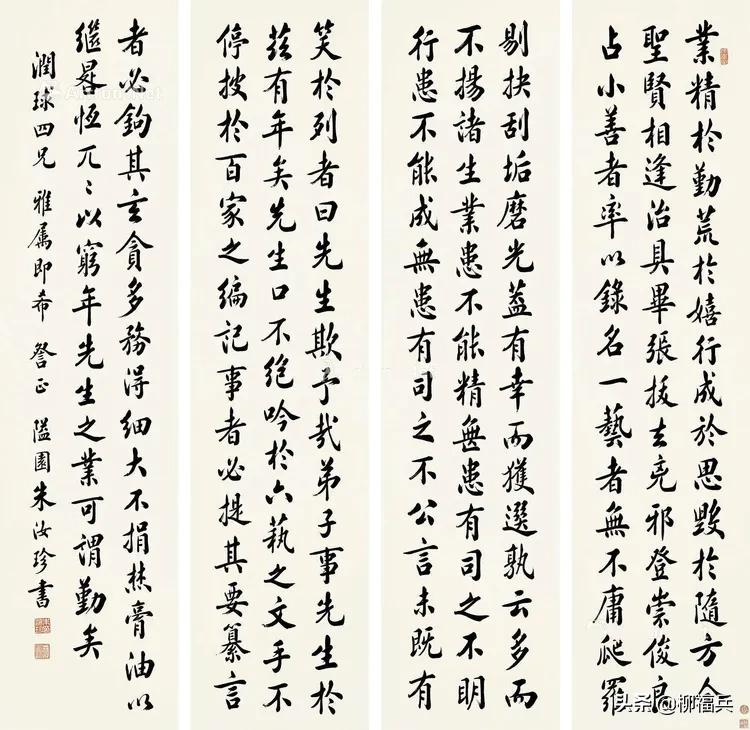 業精於勤荒於嬉行成於思毀於隨方今
聖賢相逢治具畢張拔去兇邪登崇俊良
占小善者率以錄名一藝者無不庸爬羅
剔抉刮垢磨光葢有幸而獲選孰云多而
不揚諸生業患不能精無患有司之不明
行患不能成無患有司之不公言未既有
笑於列者曰先生欺予哉弟子事先生於
茲有年矣先生口不絕吟於六藝之文手不
停披於百家之編記事者必提其要纂言
者必鉤其玄貪多務得細大不捐焚膏油以
繼晷恆兀々以窮年先生之業可謂勤矣
潤球四兄 雅属即希 詧正 隘園朱汝珍書
头条@柳福兵